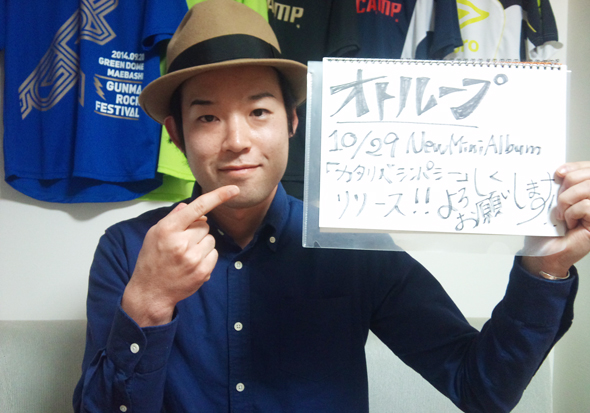 2014.09.20
GREEN DOME
MAEBASHI
GUNMA
ROCK
FESTIVAL
CAMP
CAMP
オトループ
10/29 New Mini Album
「カタリベランパシー」
リリース!! よろしくお願いします